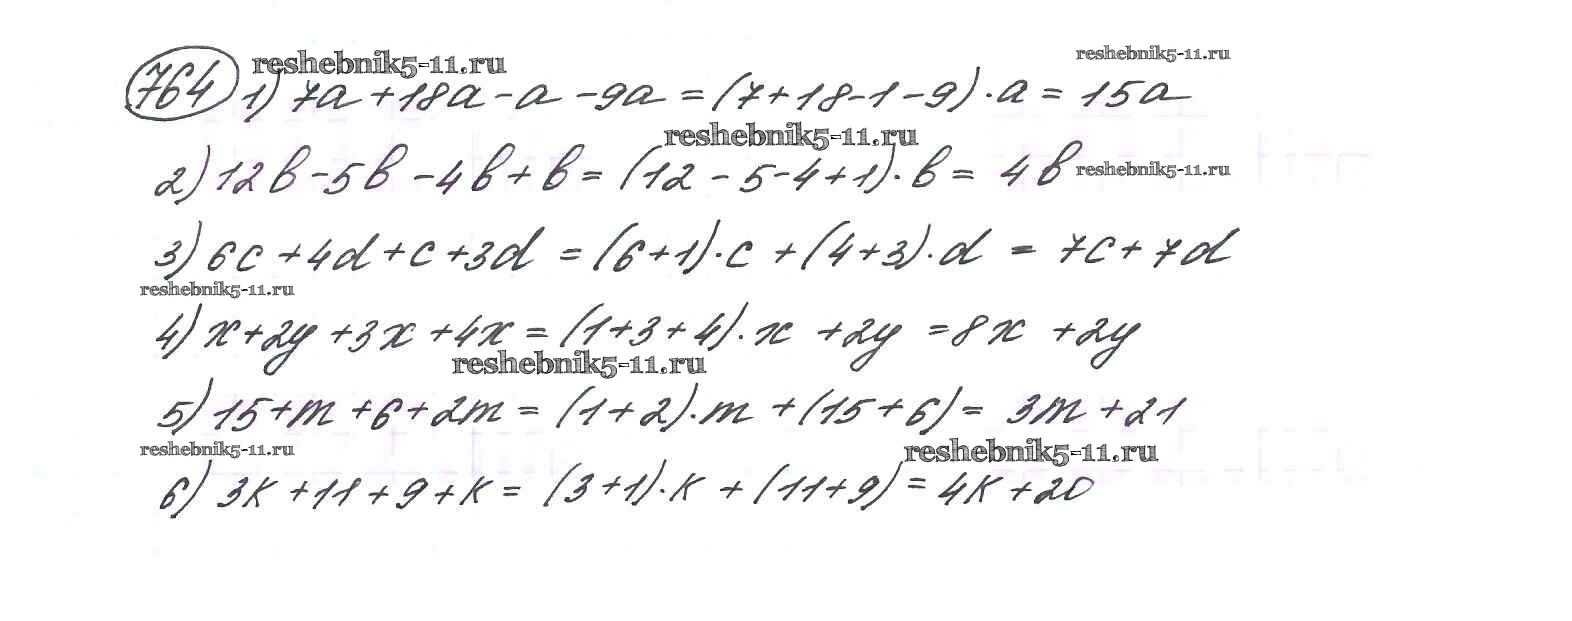 reshebnik5-11.ru
reshebnik5-11.ru
764 1) 7a + 18a - a - 9a = (7 + 18 - 1 - 9) · a = 15a
reshebnik5-11.ru
2) 12b - 5b - 4b + b = (12 - 5 - 4 + 1) · b = 4b
reshebnik5-11.ru
3) 6c + 4d + c + 3d = (6 + 1) · c + (4 + 3) · d = 7c + 7d
reshebnik5-11.ru
4) x + 2y + 3x + 4x = (1 + 3 + 4) · x + 2y = 8x + 2y
reshebnik5-11.ru
5) 15 + m + 6 + 2m = (1 + 2) · m + (15 + 6) = 3m + 21
reshebnik5-11.ru
reshebnik5-11.ru
6) 3k + 11 + 9 + k = (3 + 1) · k + (11 + 9) = 4k + 20